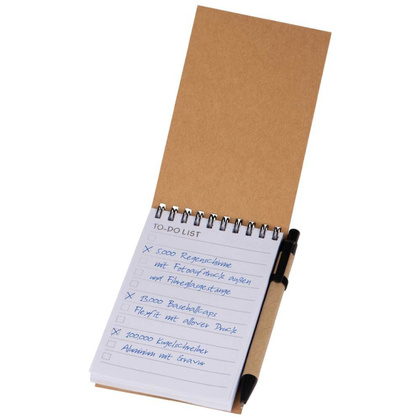 TO-DO LIST
5.000 Regenschirme
mit Fotoaufdruck außen
und Fibreglasgestänge
13.000 Baseballcaps
Flexfit mit allover Druck
100000 Kugelschreiber
Aluminium mit Gravur